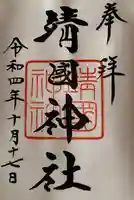 奉拝
靖國神社
令和四年十月十七日
靖國神社